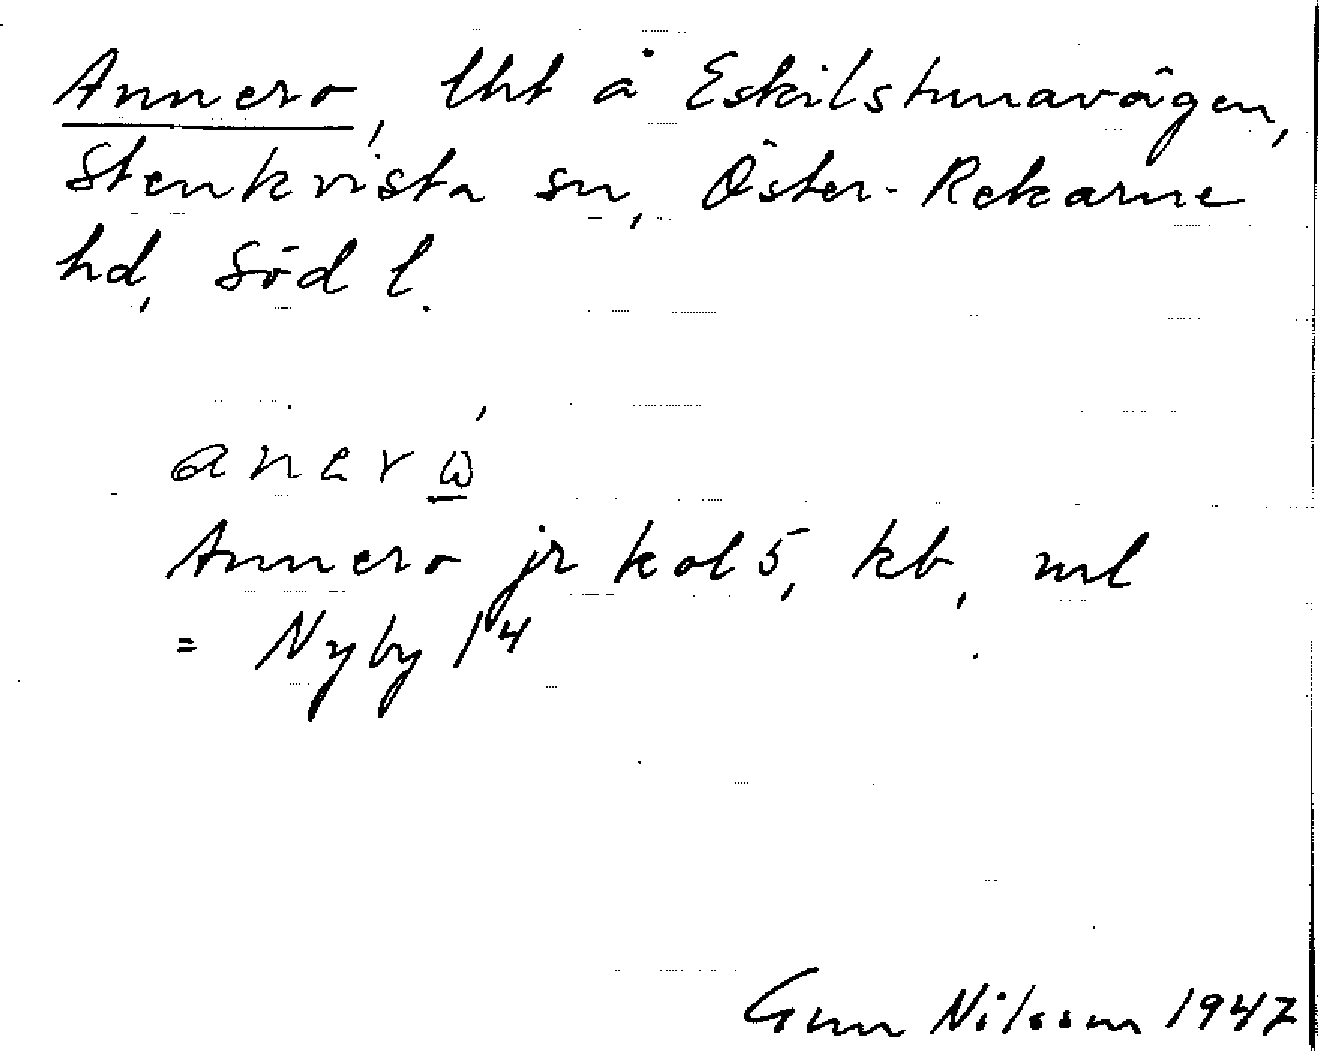 Annero, lht å Eskilstunavägen,
Stenkvista sn, Öster-Rekarne
hd, Söd l.
anerώ̲
Annero jr kol 5, kb, ml
= Nyby 1⁴
Gun Nilsson 1947